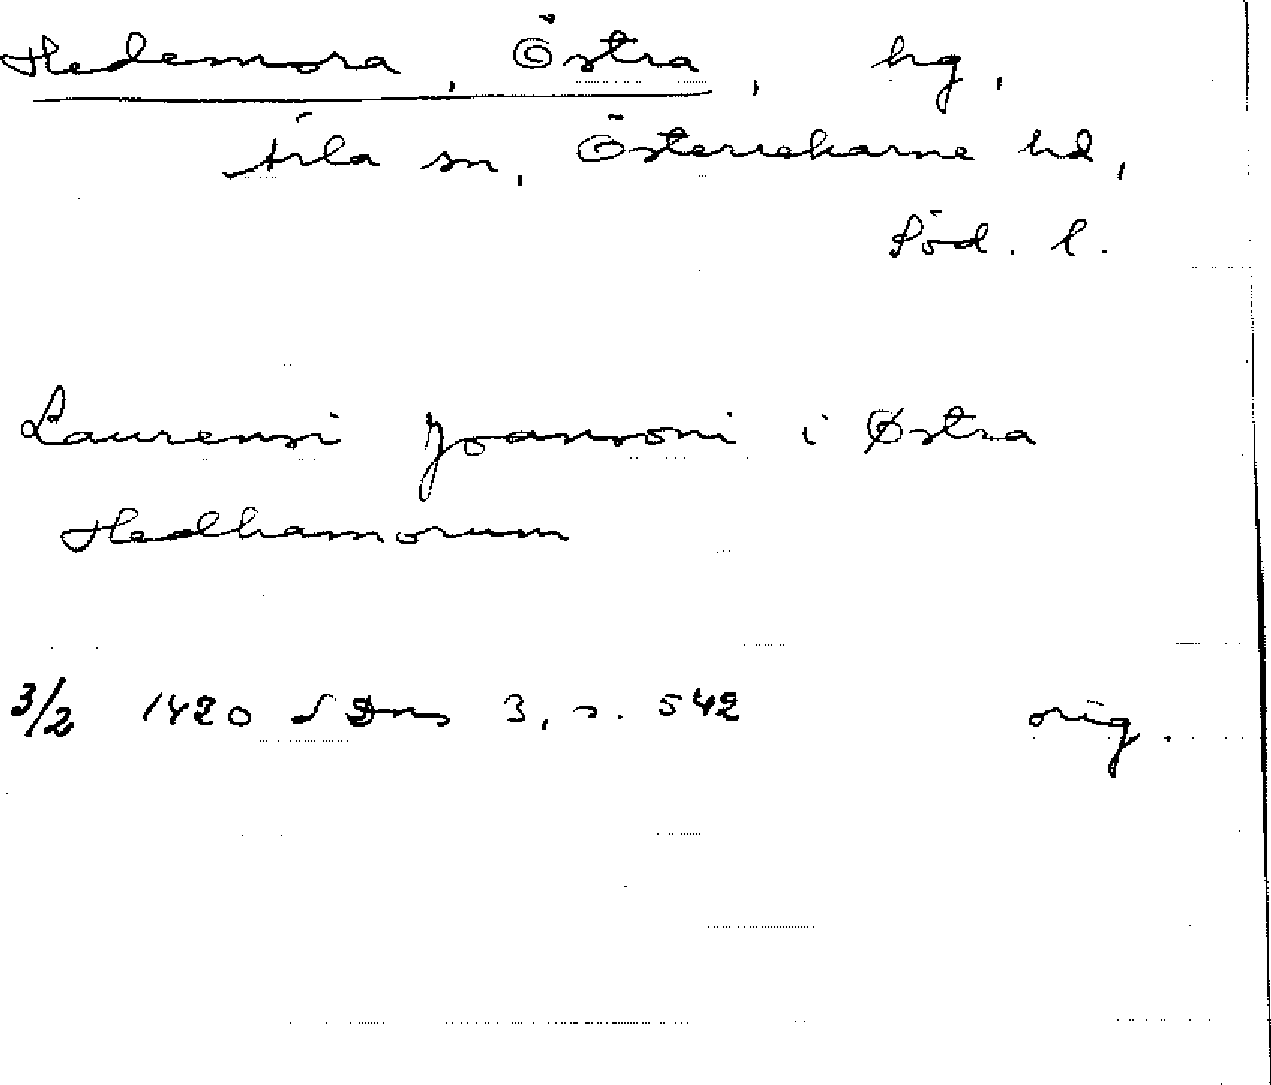 Hedemora, Östra, hg,
Ärla sn, Österrekarne hd,
Söd. l.
Laurensi Joansoni i Østra
Hedhamorum
3/2 1420 SDns 3, s. 542 orig.